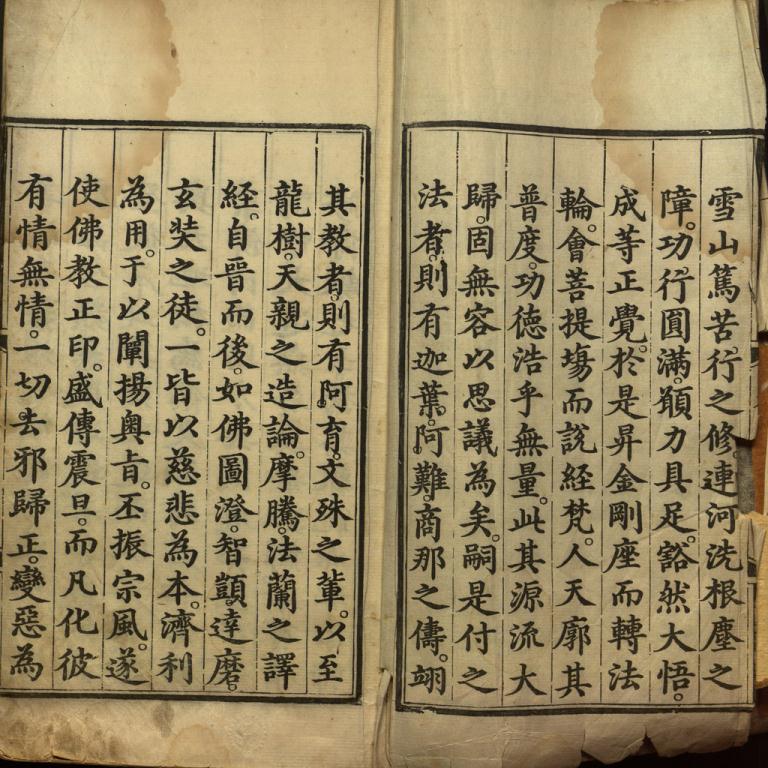 雪山篤苦行之修。連河洗根塵之
障。功行圓滿。願力具足。豁然大悟。
成等正覺。於是昇金剛座而轉法
輪。會菩提場而說經梵。人天廓其
普度。功德浩乎無量。此其源流大
歸。固無容以思議為矣。嗣是付之
法者。則有迦葉。阿難。商那之儔。翊
其教者。則有阿育。文殊之輩。以至
龍樹。天親之造論。摩騰。法蘭之譯
經。自晉而後。如佛圖澄。智顗。達磨。
玄奘之徒。一皆以慈悲為本。濟利
為用。于以闡揚奧旨。丕振宗風。遂
使佛教正印。盛傳震旦。而凡化彼
有情無情。一切去邪歸正。變惡為